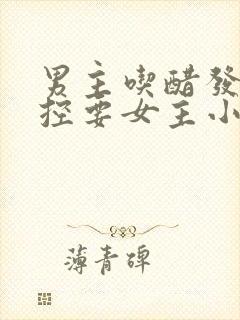 男主喫醋發
控要女主小
薄青碑